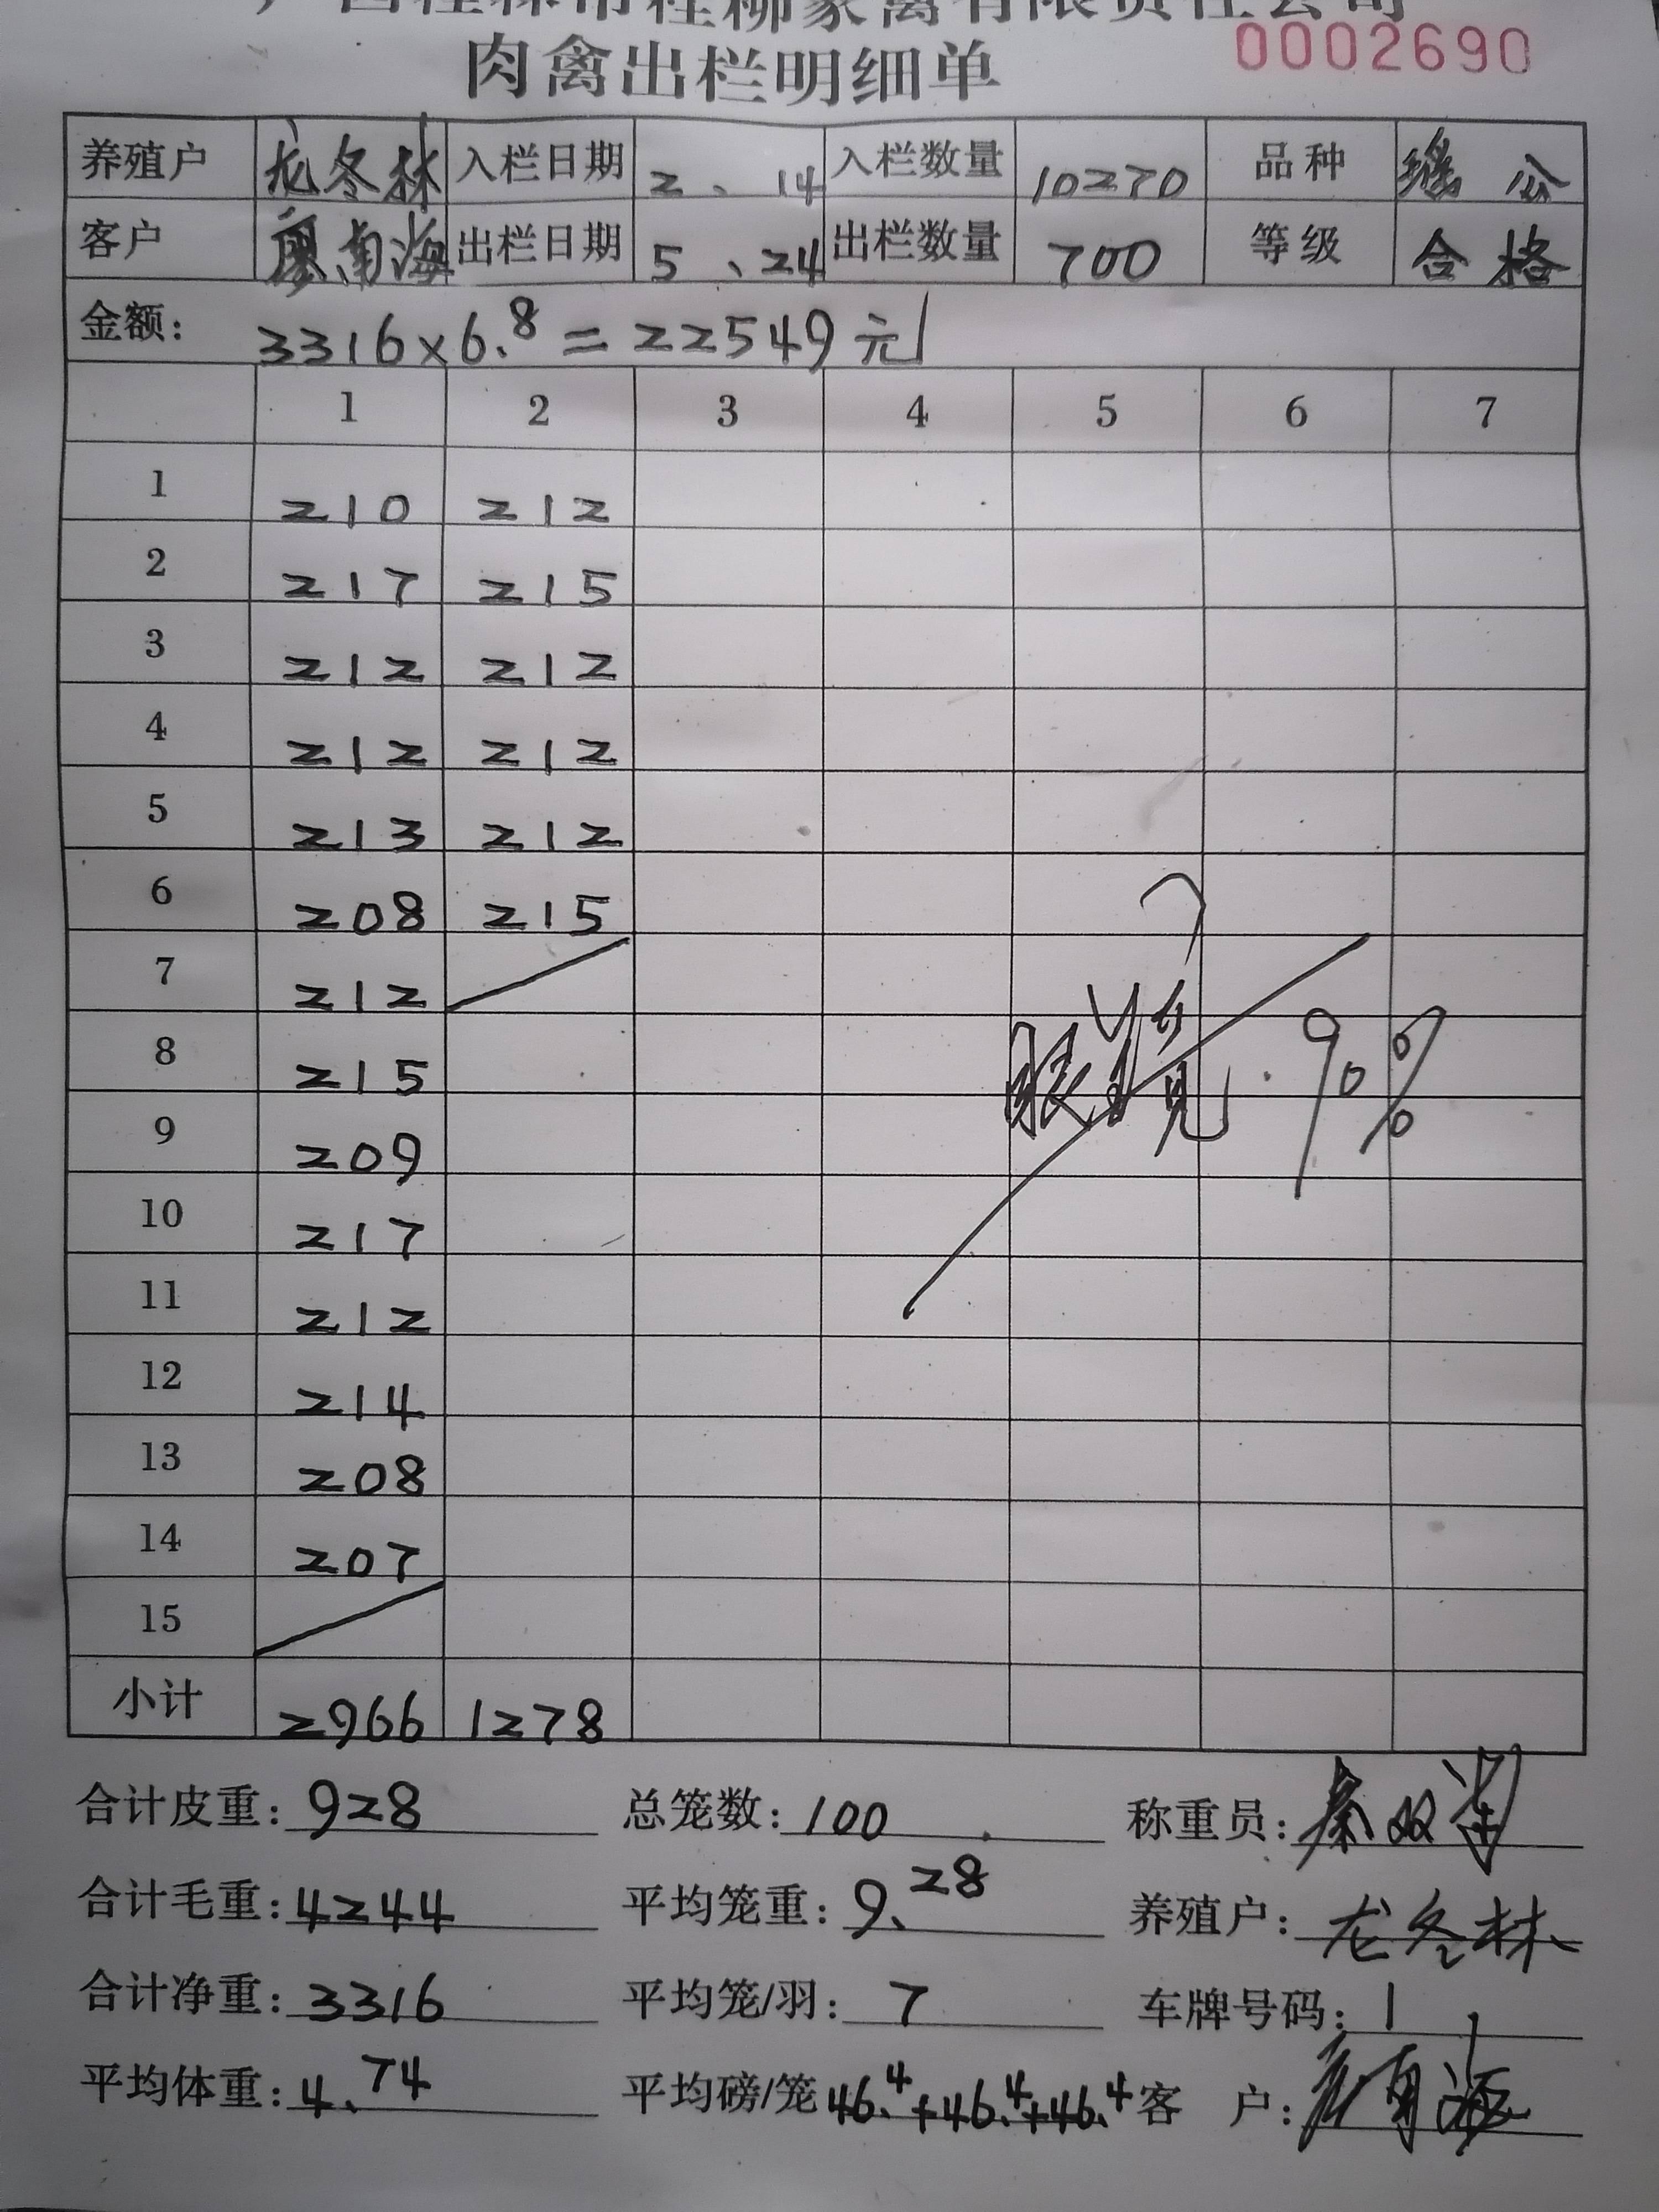 广西桂林市桂柳家禽有限责任公司
肉禽出栏明细单
0002690
养殖户 龙冬林 入栏日期 2、14 入栏数量 10270 品种 瑶公
客户 廖南海 出栏日期 5、24 出栏数量 700 等级 合格
金额: 3316×6.8=22549元
1 2 3 4 5 6 7
1 210 212
2 217 215
3 212 212
4 212 212
5 213 212
6 208 215
7 212
8 215
9 209
10 217
11 212
12 214
13 208
14 207
15
90%
小计 2966 1278
合计皮重: 928 总笼数: 100 称重员: 秦双
合计毛重: 4244 平均笼重: 9.28 养殖户: 龙冬林
合计净重: 3316 平均笼/羽: 7 车牌号码: 1
平均体重: 4.74 平均磅/笼 46.4+46.4+46.4 客户: 廖南海